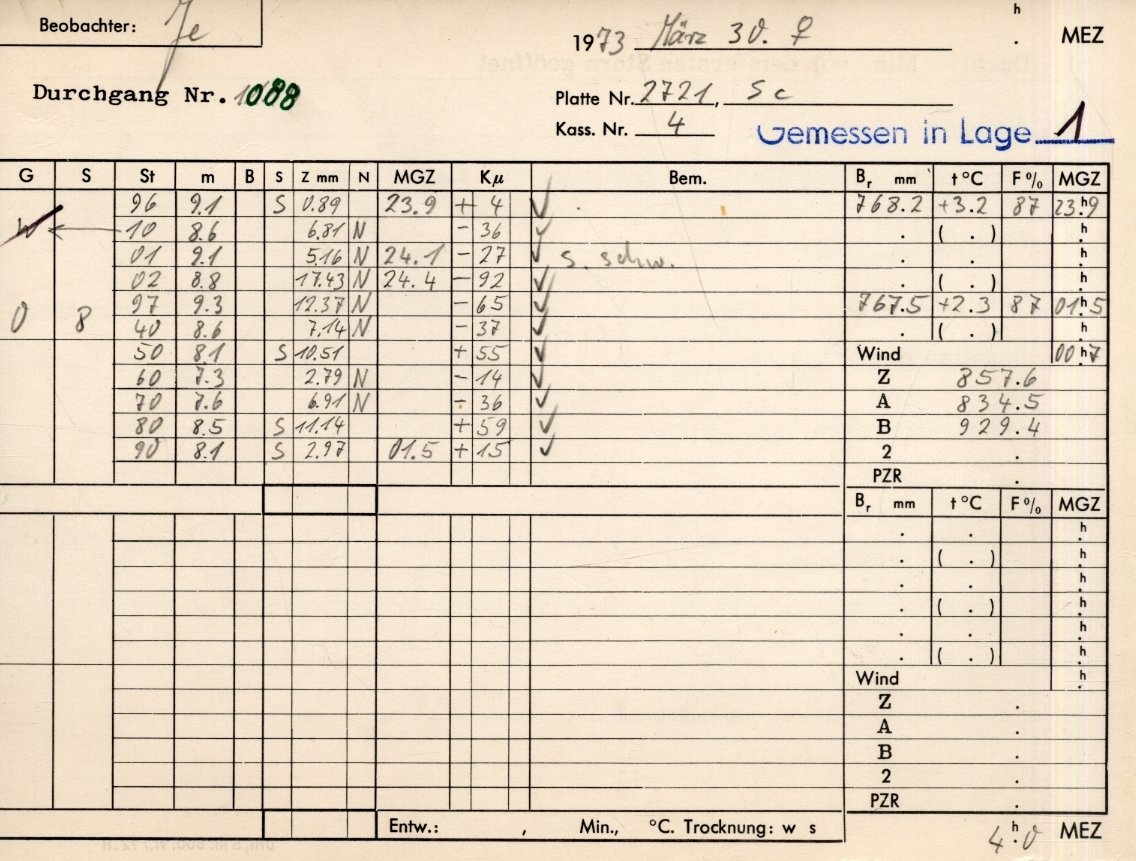 Beobachter: Je
1973 März 30. ♀ h . MEZ
Durchgang Nr. 1088
Platte Nr. 2721, Sc
Kass. Nr. 4
Gemessen in Lage 1
G S St m B S Z mm N MGZ Kµ Bem. Br mm t°C F% MGZ
96 9.1 S 0.89 23.9 + 4 ✓ 768.2 +3.2 87 23h.9
W ← 10 8.6 6.81 N - 36 ✓ . ( . ) h.
01 9.1 5.16 N 24.1 - 27 ✓ s. schw. . . h.
02 8.8 17.43 N 24.4 - 92 ✓ . ( . ) h.
97 9.3 12.37 N - 65 ✓ 767.5 +2.3 87 01h.5
0 8 40 8.6 7.14 N - 37 ✓ . ( . ) h.
50 8.1 S 10.51 + 55 ✓ Wind 00h.7
60 7.3 2.79 N - 14 ✓ Z 857.6
70 7.6 6.91 N - 36 ✓ A 834.5
80 8.5 S 11.14 + 59 ✓ B 929.4
90 8.1 S 2.97 01.5 + 15 ✓ 2 .
PZR .
Br mm t°C F% MGZ
. . h.
. ( . ) h.
. . h.
. ( . ) h.
. . h.
. ( . ) h.
Wind h.
Z .
A .
B .
2 .
PZR .
Entw.: , Min., °C. Trocknung: w s
4h.0 MEZ